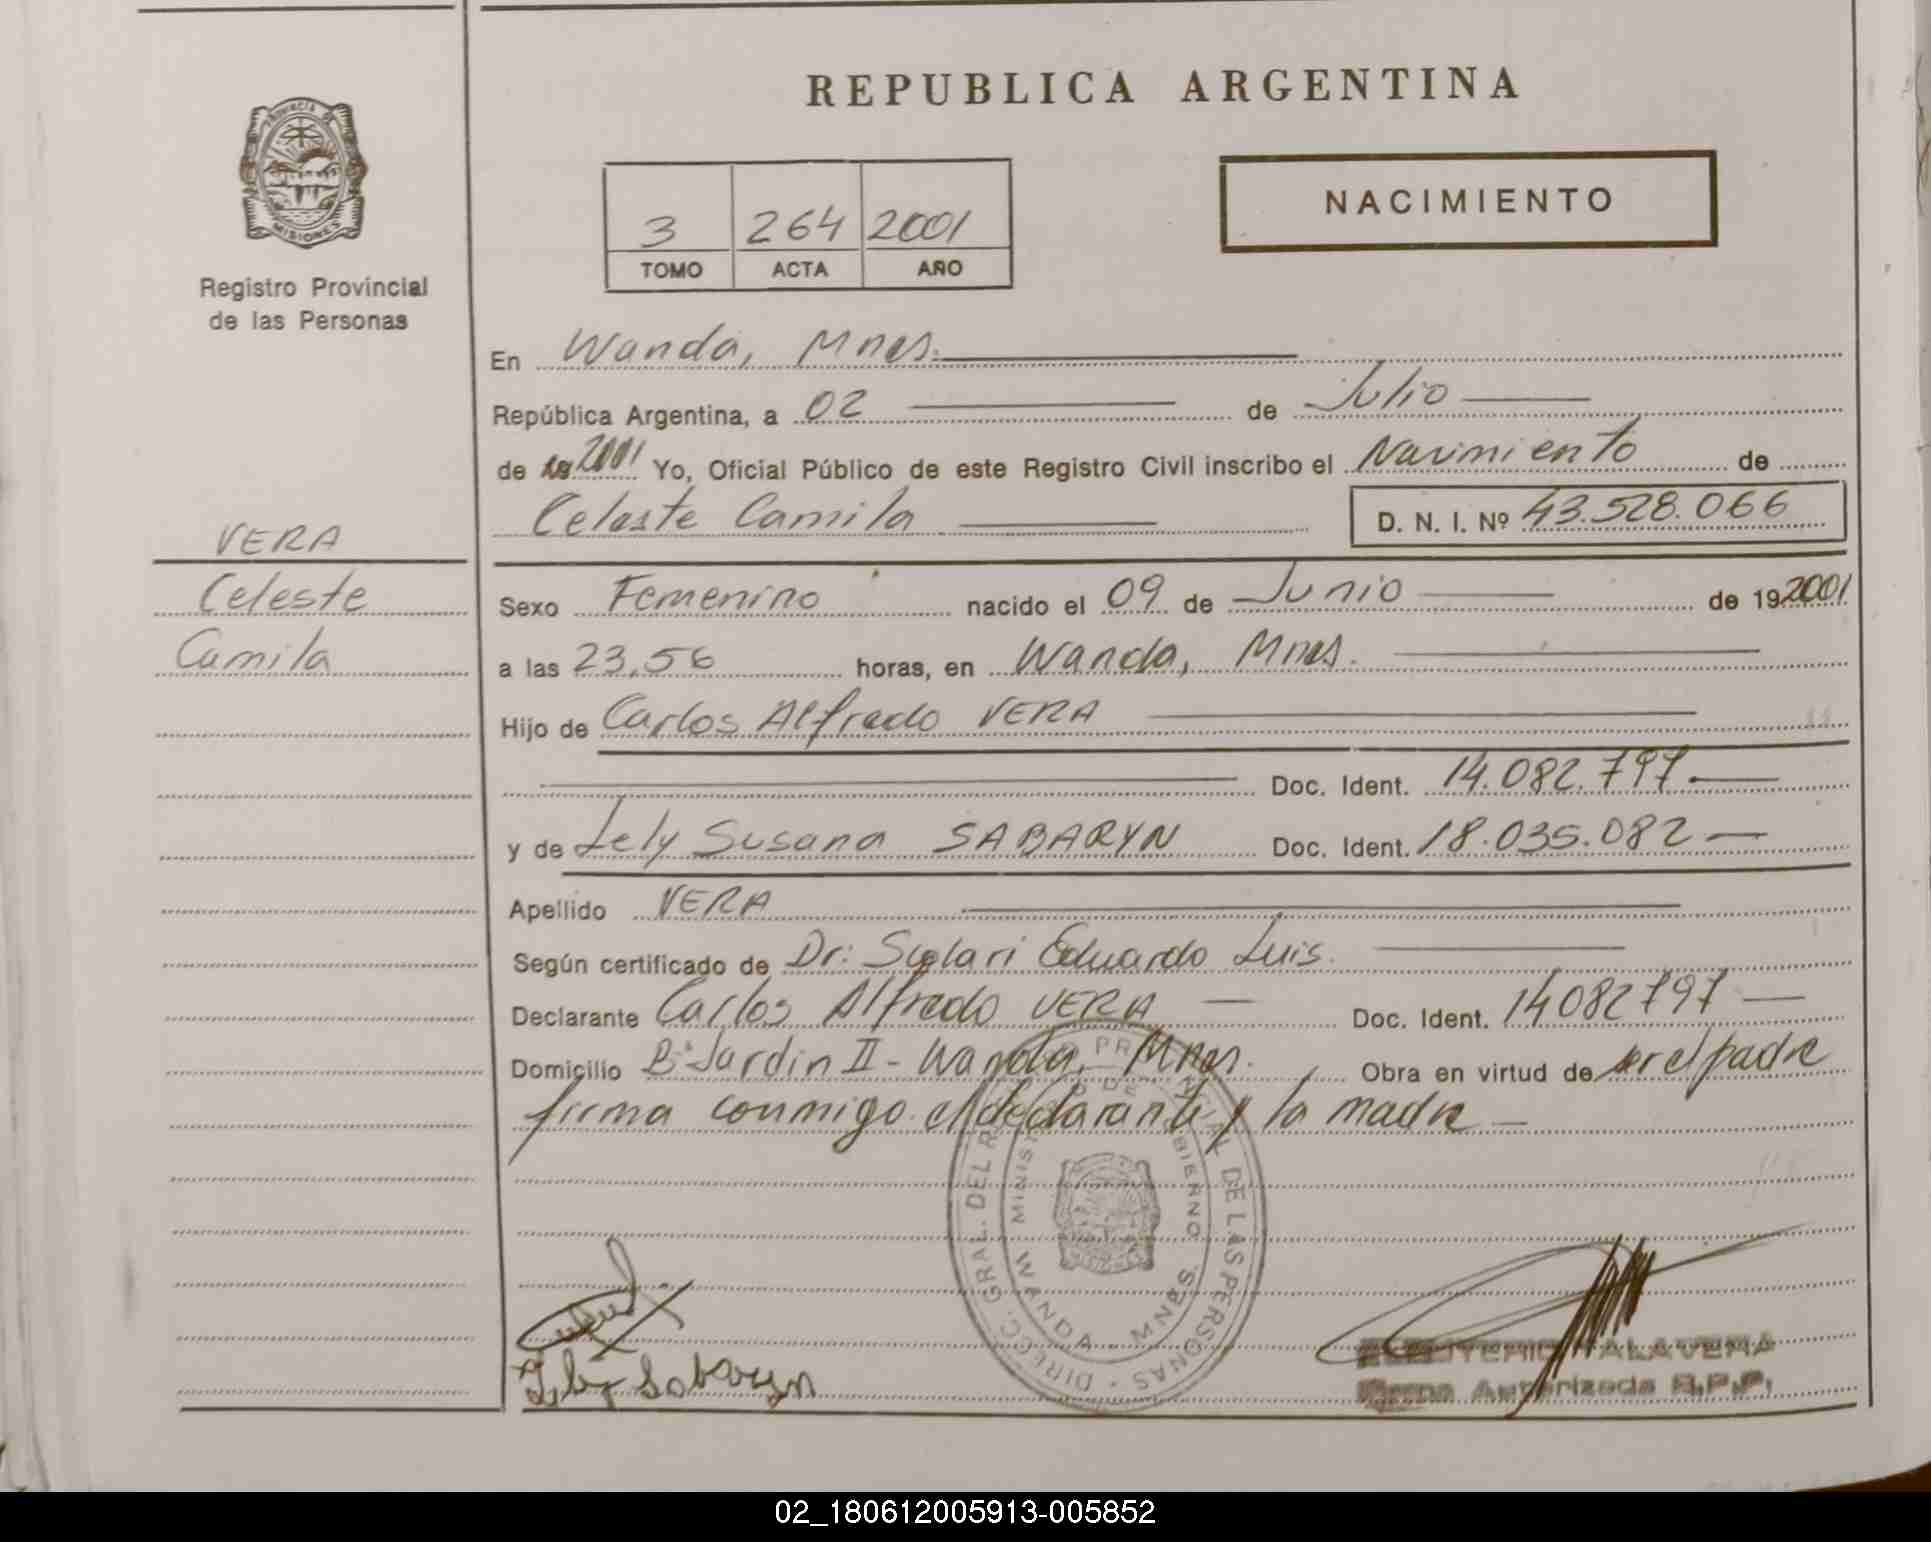 REPUBLICA ARGENTINA
PROVINCIA DE MISIONES
Registro Provincial
de las Personas
NACIMIENTO
3 264 2001
TOMO ACTA AÑO
En Wanda, Mnes.
República Argentina, a 02 de Julio
de 19 2001 Yo, Oficial Público de este Registro Civil inscribo el Nacimiento de
Celeste Camila D. N. I. Nº 43.528.066
VERA
Celeste
Camila
Sexo Femenino nacido el 09 de Junio de 19 2001
a las 23,56 horas, en Wanda, Mnes.
Hijo de Carlos Alfredo VERA
Doc. Ident. 14.082.797
y de Lely Susana SABARYN Doc. Ident. 18.035.082
Apellido VERA
Según certificado de Dr: Scolari Eduardo Luis.
Declarante Carlos Alfredo VERA Doc. Ident. 14082797
Domicilio Bº Jardin II - Wanda, Mnes. Obra en virtud de ser el padre
firma conmigo el declarante y la madre
DIRECC. GRAL. DEL PROVINCIAL DE LAS PERSONAS
WANDA - MNES.
Lely Sabaryn
TALAVERA
Firma Autorizada R.P.P.
02_180612005913-005852